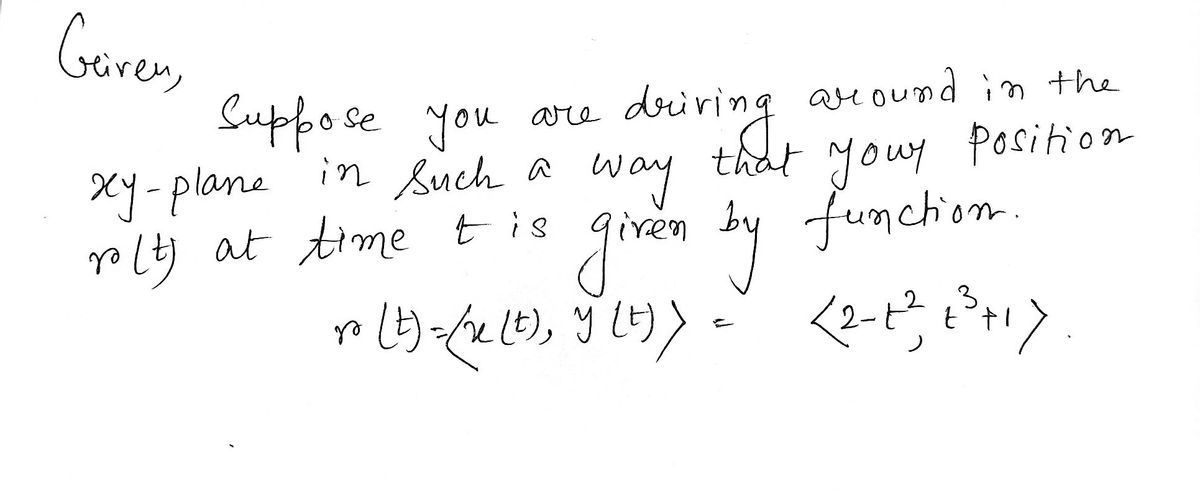 Given,
Suppose you are driving around in the
xy-plane in such a way that your position
r(t) at time t is given by function.
r(t)=⟨x(t), y(t)⟩ = ⟨2-t², t³+1⟩.